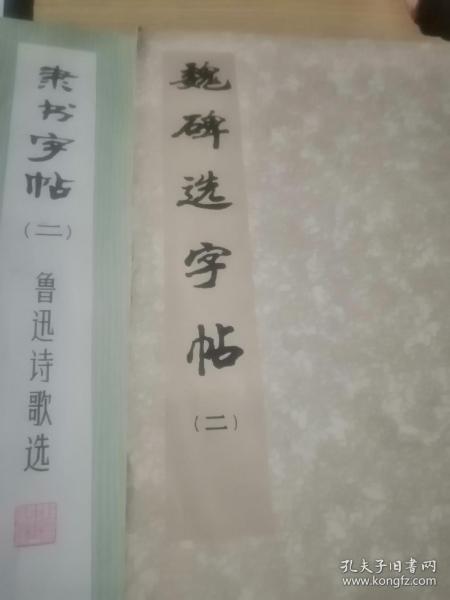 隶书字帖
(二)
鲁迅诗歌选
魏碑选字帖
(二)
孔夫子旧书网
www.kongfz.com